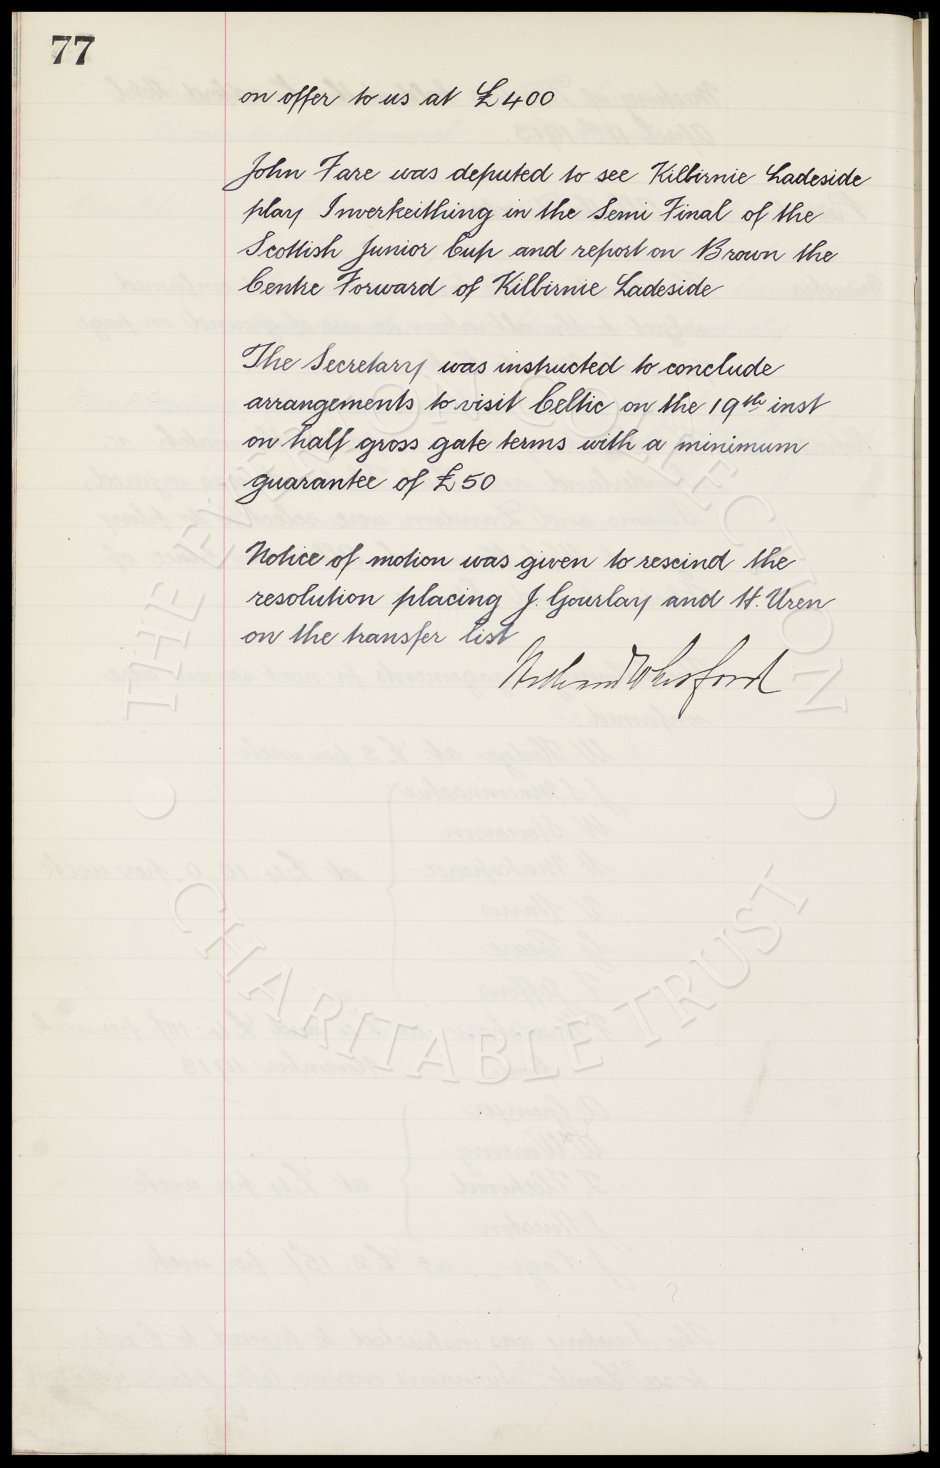 77
on offer to us at £400
John Fare was deputed to see Kilbirnie Ladeside
play Inverkeithing in the Semi Final of the
Scottish Junior Cup and report on Brown the
Centre Forward of Kilbirnie Ladeside
The Secretary was instructed to conclude
arrangements to visit Celtic on the 19th inst
on half gross gate terms with a minimum
guarantee of £50
Notice of motion was given to rescind the
resolution placing J. Gourlay and H. Uren
on the transfer list
THE EVERTON COLLECTION
CHARITABLE TRUST